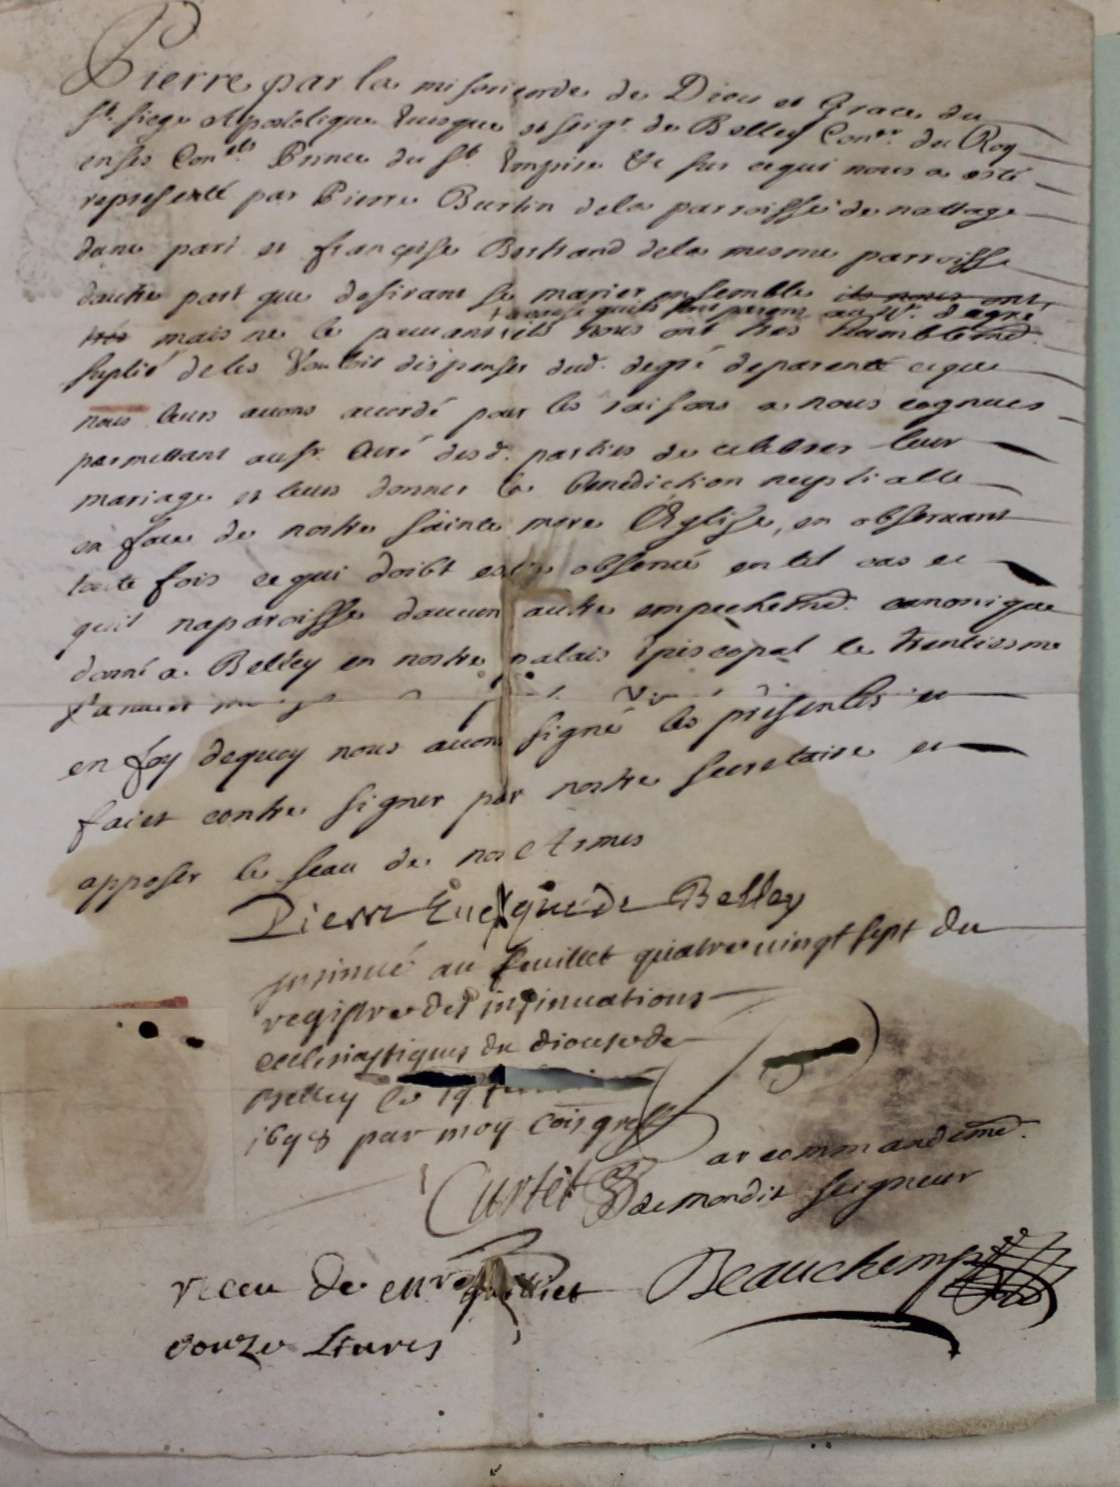 Pierre par la misericorde de Dieu et Grace du
St. siege Apostolique Euesque et seigr. de Belley Coner. du Roy
en ses Conels Prince du St Empire &c sur ce qui nous a esté
representé par Pierre Burtin de la parroisse de nattage
dune part et françoise Bertrand de la mesme parroisse
dautre part que desirant se marier ensemble ils nous ont
a cause quils sont parens au 4e. dagré
tres mais ne le peuuant ils nous ont tres humblemd.
suplié de les Vouloir dispenser dud. degré de parenté ce que
nous leurs auons accordé pour les raisons a nous cognues
permettant au sr. Curé desd. parties de celebrer leur
mariage et leur donner la benediction nuptialle
en face de nostre sainte mere Eglise, en obseruant
toute fois ce qui doibt estre obserué en tel cas et
quil naparoisse daucun autre empechemd. canonique
donné a Belley en nostre palais Episcopal le trentiesme
Januier
en foy dequoy nous auons signé les presentes et
faict contre signer par nostre secretaire et
apposer le seau de nos Armes
Pierre Euesque de Belley
insinué au feuillet quatre uingt sept du
registre des insinuations
ecclesiastiques du diocese de
Belley le 19
par moy greff
Curtet
par commandemd.
de mondit seigneur
Beauchemp
receu de
douze Liures